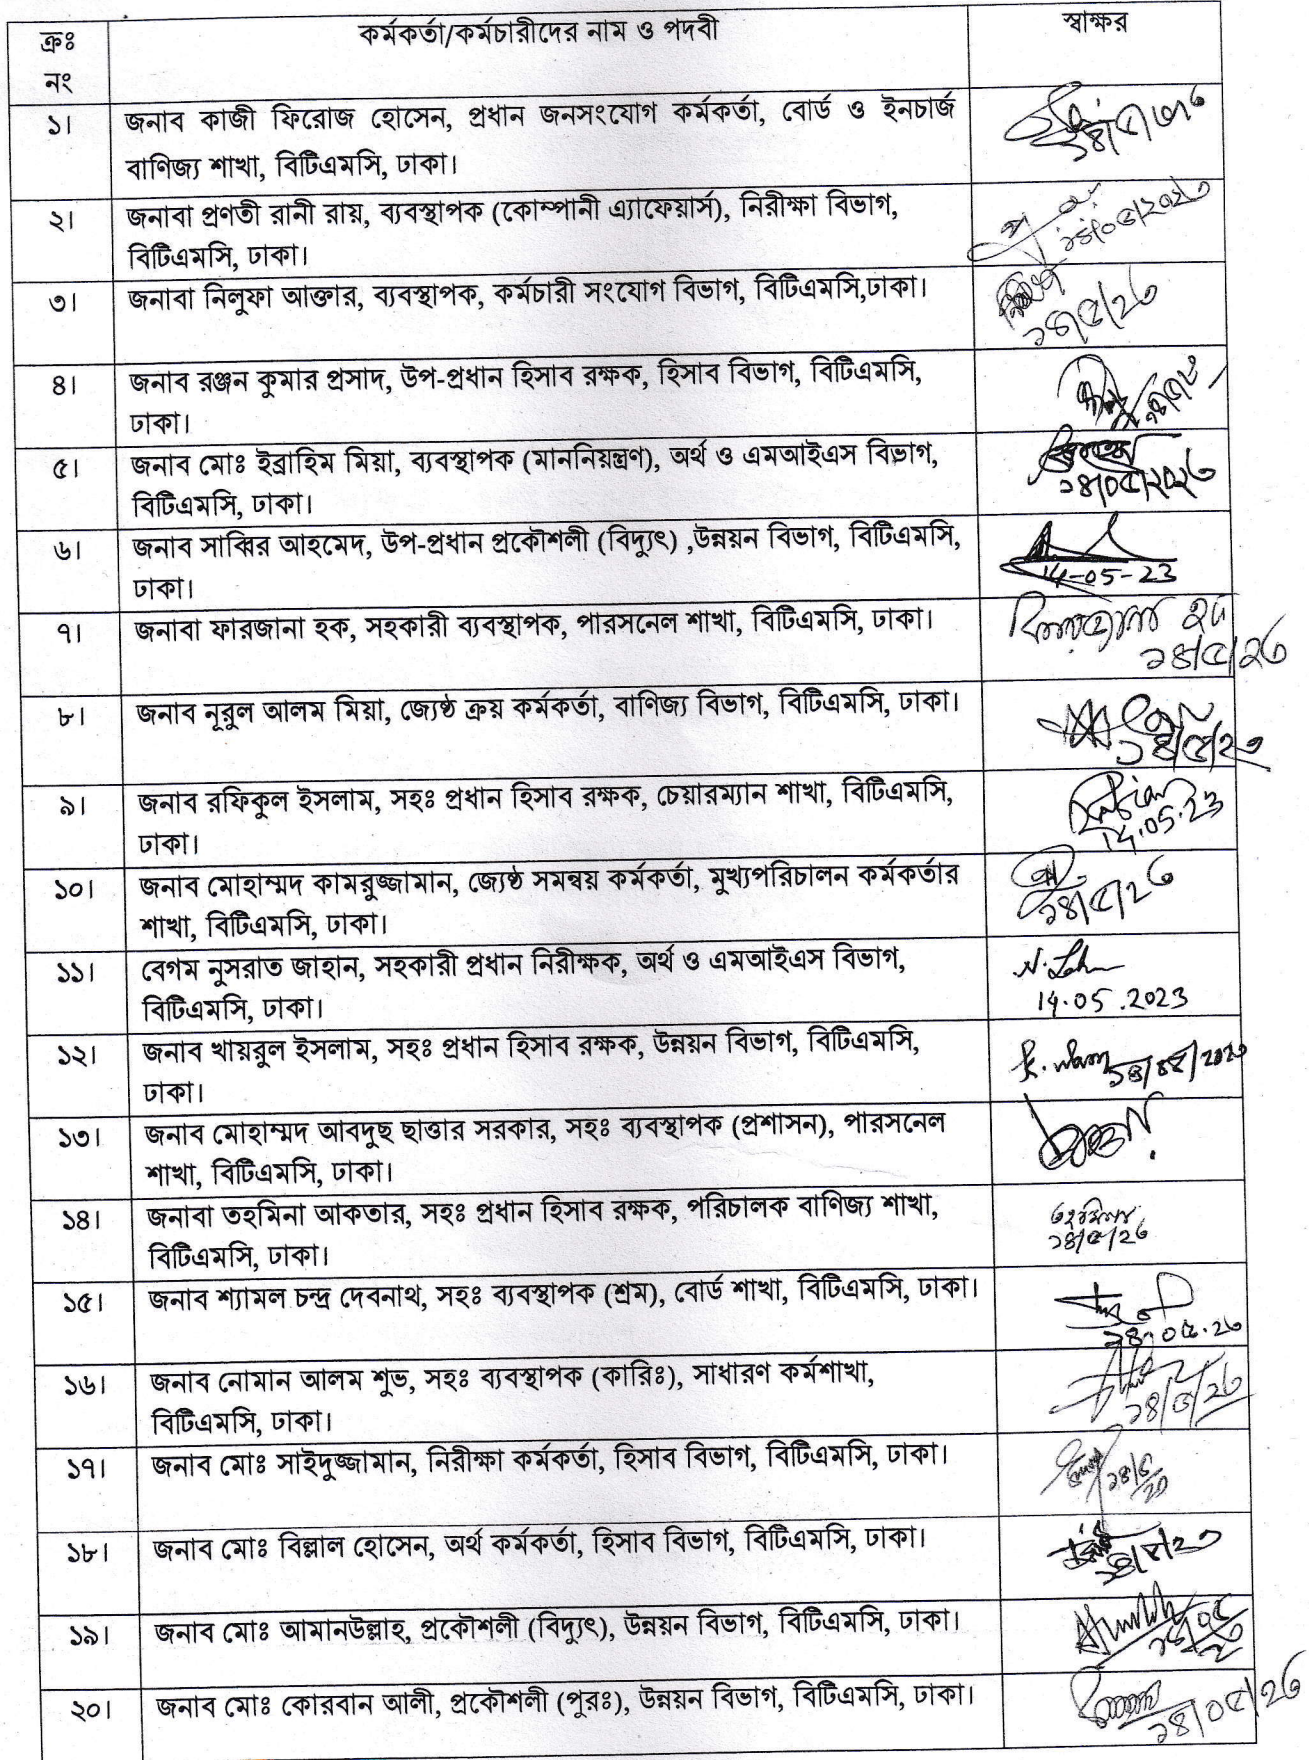 ক্রঃ নং কর্মকর্তা/কর্মচারীদের নাম ও পদবী স্বাক্ষর
১। জনাব কাজী ফিরোজ হোসেন, প্রধান জনসংযোগ কর্মকর্তা, বোর্ড ও ইনচার্জ
বাণিজ্য শাখা, বিটিএমসি, ঢাকা।
২। জনাবা প্রণতী রানী রায়, ব্যবস্থাপক (কোম্পানী এ্যাফেয়ার্স), নিরীক্ষা বিভাগ,
বিটিএমসি, ঢাকা। ১৪/০৫/২০২৩
৩। জনাবা নিলুফা আক্তার, ব্যবস্থাপক, কর্মচারী সংযোগ বিভাগ, বিটিএমসি,ঢাকা।
১৪/৫/২৩
৪। জনাব রঞ্জন কুমার প্রসাদ, উপ-প্রধান হিসাব রক্ষক, হিসাব বিভাগ, বিটিএমসি,
ঢাকা।
৫। জনাব মোঃ ইব্রাহিম মিয়া, ব্যবস্থাপক (মাননিয়ন্ত্রণ), অর্থ ও এমআইএস বিভাগ,
বিটিএমসি, ঢাকা। ১৪/০৫/২০২৩
৬। জনাব সাব্বির আহমেদ, উপ-প্রধান প্রকৌশলী (বিদ্যুৎ) ,উন্নয়ন বিভাগ, বিটিএমসি,
ঢাকা। 14-05-23
৭। জনাবা ফারজানা হক, সহকারী ব্যবস্থাপক, পারসনেল শাখা, বিটিএমসি, ঢাকা। ফারজানা হক
১৪/৫/২৩
৮। জনাব নূরুল আলম মিয়া, জ্যেষ্ঠ ক্রয় কর্মকর্তা, বাণিজ্য বিভাগ, বিটিএমসি, ঢাকা।
১৪/৫/২৩
৯। জনাব রফিকুল ইসলাম, সহঃ প্রধান হিসাব রক্ষক, চেয়ারম্যান শাখা, বিটিএমসি,
ঢাকা। 14.05.23
১০। জনাব মোহাম্মদ কামরুজ্জামান, জ্যেষ্ঠ সমন্বয় কর্মকর্তা, মুখ্যপরিচালন কর্মকর্তার
শাখা, বিটিএমসি, ঢাকা। ১৪/৫/২৩
১১। বেগম নুসরাত জাহান, সহকারী প্রধান নিরীক্ষক, অর্থ ও এমআইএস বিভাগ,
বিটিএমসি, ঢাকা। 14.05.2023
১২। জনাব খায়রুল ইসলাম, সহঃ প্রধান হিসাব রক্ষক, উন্নয়ন বিভাগ, বিটিএমসি,
ঢাকা। ১৪/০৫/২০২৩
১৩। জনাব মোহাম্মদ আবদুছ ছাত্তার সরকার, সহঃ ব্যবস্থাপক (প্রশাসন), পারসনেল
শাখা, বিটিএমসি, ঢাকা।
১৪। জনাবা তহমিনা আকতার, সহঃ প্রধান হিসাব রক্ষক, পরিচালক বাণিজ্য শাখা, তহমিনা
বিটিএমসি, ঢাকা। ১৪/৫/২৩
১৫। জনাব শ্যামল চন্দ্র দেবনাথ, সহঃ ব্যবস্থাপক (শ্রম), বোর্ড শাখা, বিটিএমসি, ঢাকা।
১৪.০৫.২৩
১৬। জনাব নোমান আলম শুভ, সহঃ ব্যবস্থাপক (কারিঃ), সাধারণ কর্মশাখা,
বিটিএমসি, ঢাকা। ১৪/৫/২৩
১৭। জনাব মোঃ সাইদুজ্জামান, নিরীক্ষা কর্মকর্তা, হিসাব বিভাগ, বিটিএমসি, ঢাকা।
১৮। জনাব মোঃ বিল্লাল হোসেন, অর্থ কর্মকর্তা, হিসাব বিভাগ, বিটিএমসি, ঢাকা।
১৪/৫/২৩
১৯। জনাব মোঃ আমানউল্লাহ, প্রকৌশলী (বিদ্যুৎ), উন্নয়ন বিভাগ, বিটিএমসি, ঢাকা।
২০। জনাব মোঃ কোরবান আলী, প্রকৌশলী (পুরঃ), উন্নয়ন বিভাগ, বিটিএমসি, ঢাকা।
১৪/০৫/২৩